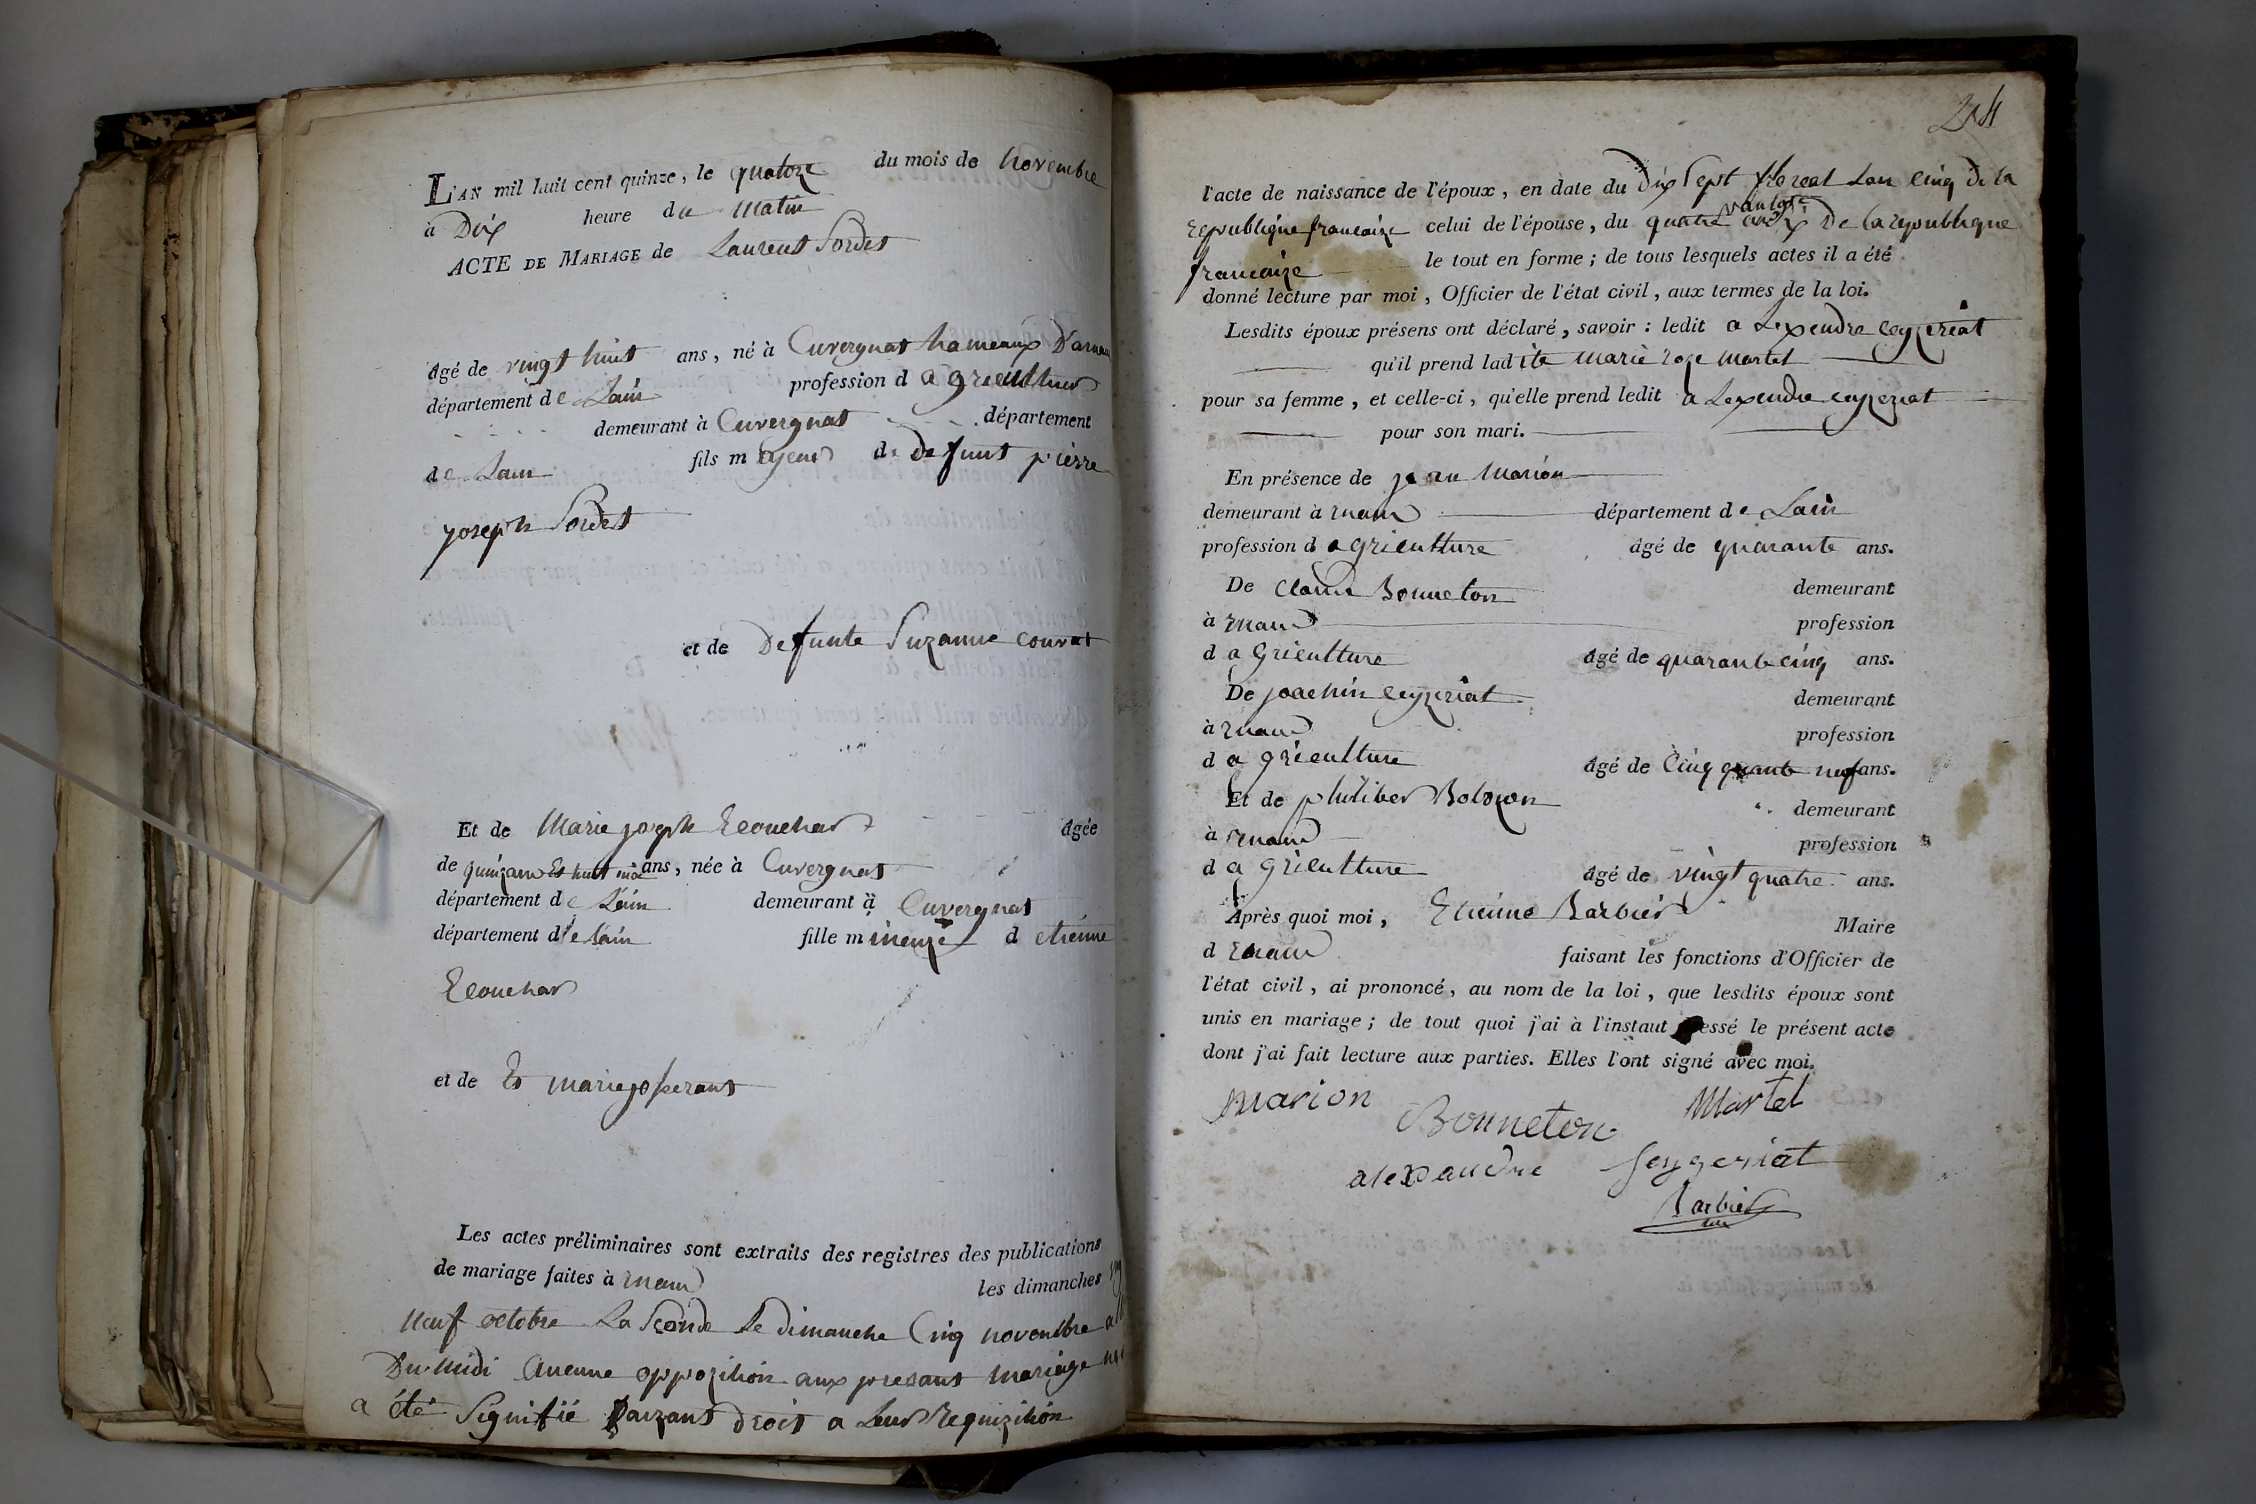 L'AN mil huit cent quinze, le quatorze du mois de Novembre
à Dix heure du Matin
ACTE DE MARIAGE de Laurent Sordet
âgé de vingt huit ans, né à Cuvergnat hameaux D'arnan
département de Lain profession d agriculteur
demeurant à Cuvergnat département
de Lain fils majeur de defunt pierre
joseph Sordet
et de Defunte Suzanne couvat
Et de Marie joseph Ecouchar âgée
de quinzans Et huit moi ans, née à Cuvergnat
département de Lain demeurant à Cuvergnat
département de Lain fille mineuze d etienne
Ecouchar
et de Et marie josperant
Les actes préliminaires sont extraits des registres des publications
de mariage faites à rnand les dimanches
neuf octobre La Sconde Le dimanche Cinq novembre
Du midi Aucune oppozition aux presant mariage
a été Signifié faizant droit a Leur requizition
24
l'acte de naissance de l'époux, en date du dix Sept floreal Lan cinq de la
republique francaize celui de l'épouse, du quatre vantose De la republique
francaize le tout en forme; de tous lesquels actes il a été
donné lecture par moi, Officier de l'état civil, aux termes de la loi.
Lesdits époux présens ont déclaré, savoir: ledit a Lexendre ceyzeriat
qu'il prend ladite marie roze martel
pour sa femme, et celle-ci, qu'elle prend ledit a Lexendre ceyzeriat
pour son mari.
En présence de jean Marion
demeurant à rnand département de Lain
profession d agriculture âgé de quarante ans.
De Claude Bonneton demeurant
à rnand profession
d agriculture âgé de quarante cinq ans.
De joachin ceyzeriat demeurant
à rnand profession
d agriculture âgé de Cinqquante neuf ans.
Et de philiber Bolozon demeurant
à rnand profession
d agriculture âgé de vingt quatre ans.
Après quoi moi, Etienne Barbier Maire
d rnand faisant les fonctions d'Officier de
l'état civil, ai prononcé, au nom de la loi, que lesdits époux sont
unis en mariage; de tout quoi j'ai à l'instant dressé le présent acte
dont j'ai fait lecture aux parties. Elles l'ont signé avec moi.
Marion Martel
Bonneton
alexandre Seyzeriat
Barbier